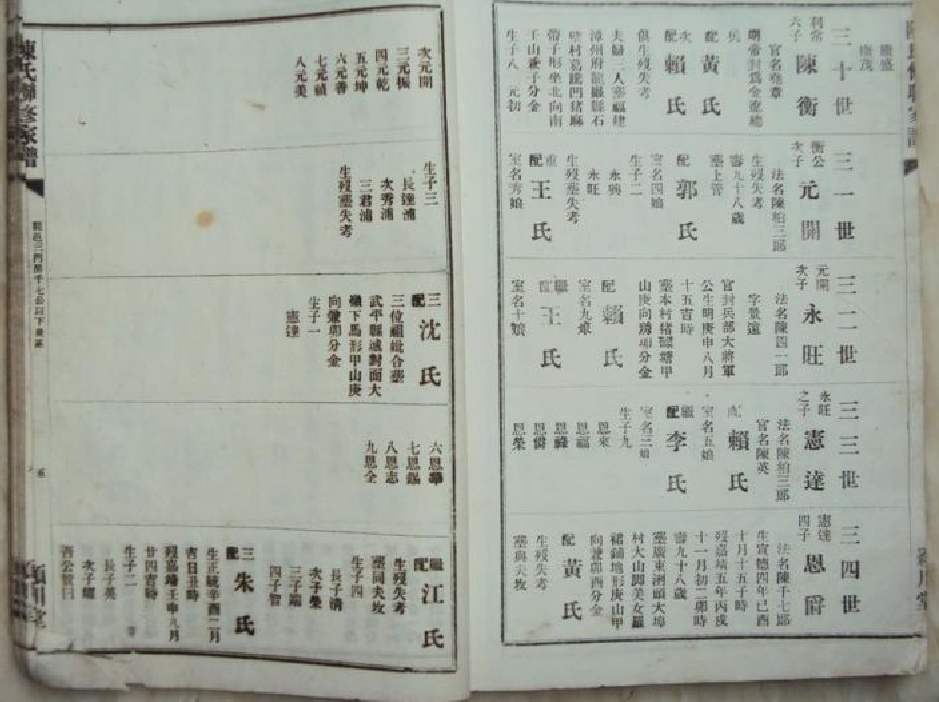 應盛
應茂
三十世
利常
六子
陳衡
官名逸章
配黃氏
次配賴氏
俱生歿失考
夫婦二人墓福建
漳州府龍巖縣石
帶子形坐北向南
壬山兼子分金
生子八
元初
三一世
衡公
次子
元開
法名陳柏三郎
生歿失考
壽九十八歲
墓上管
配郭氏
室名四娘
生子二
永興
永旺
生歿墓失考
重配王氏
室名秀娘
三二世
元開
次子
永旺
法名陳四一郎
字景遠
官封兵部大將軍
公生明庚申八月
十五吉時
墓本村豬頭塘甲
山庚向
分金
配賴氏
室名九娘
繼配王氏
室名十娘
三三世
永旺
之子
憲達
法名陳柏三郎
官名陳英
配賴氏
室名五娘
繼配李氏
室名三娘
生子九
恩來
恩福
恩祿
恩爵
恩榮
三四世
憲達
四子
恩爵
法名陳千七郎
生宣德四年己酉
十月十五子時
歿嘉靖五年丙戌
十一月初二卯時
壽九十八歲
墓廣東洲頭大埠
村大山脚美女羅
裙鋪地形庚山甲
向兼卯酉分金
配黃氏
生歿失考
墓與夫坟
次元開
三元振
四元乾
五元坤
六元善
七元禎
八元美
生子三
長達浦
次秀浦
三君浦
生歿墓失考
三配沈氏
三位祖妣合墓
武平縣城對面大
嶺下馬形甲山庚
向兼卯分金
生子一
憲達
六恩華
七恩錫
八恩志
九恩全
繼配江氏
生歿失考
墓同夫坟
生子四
長子清
次子榮
三子瑞
四子智
三配朱氏
生正統辛酉二月
吉日丑時
歿嘉靖壬申九月
廿四吉時
生子二
長子英
次子耀
陳氏聯修家譜
潁川堂